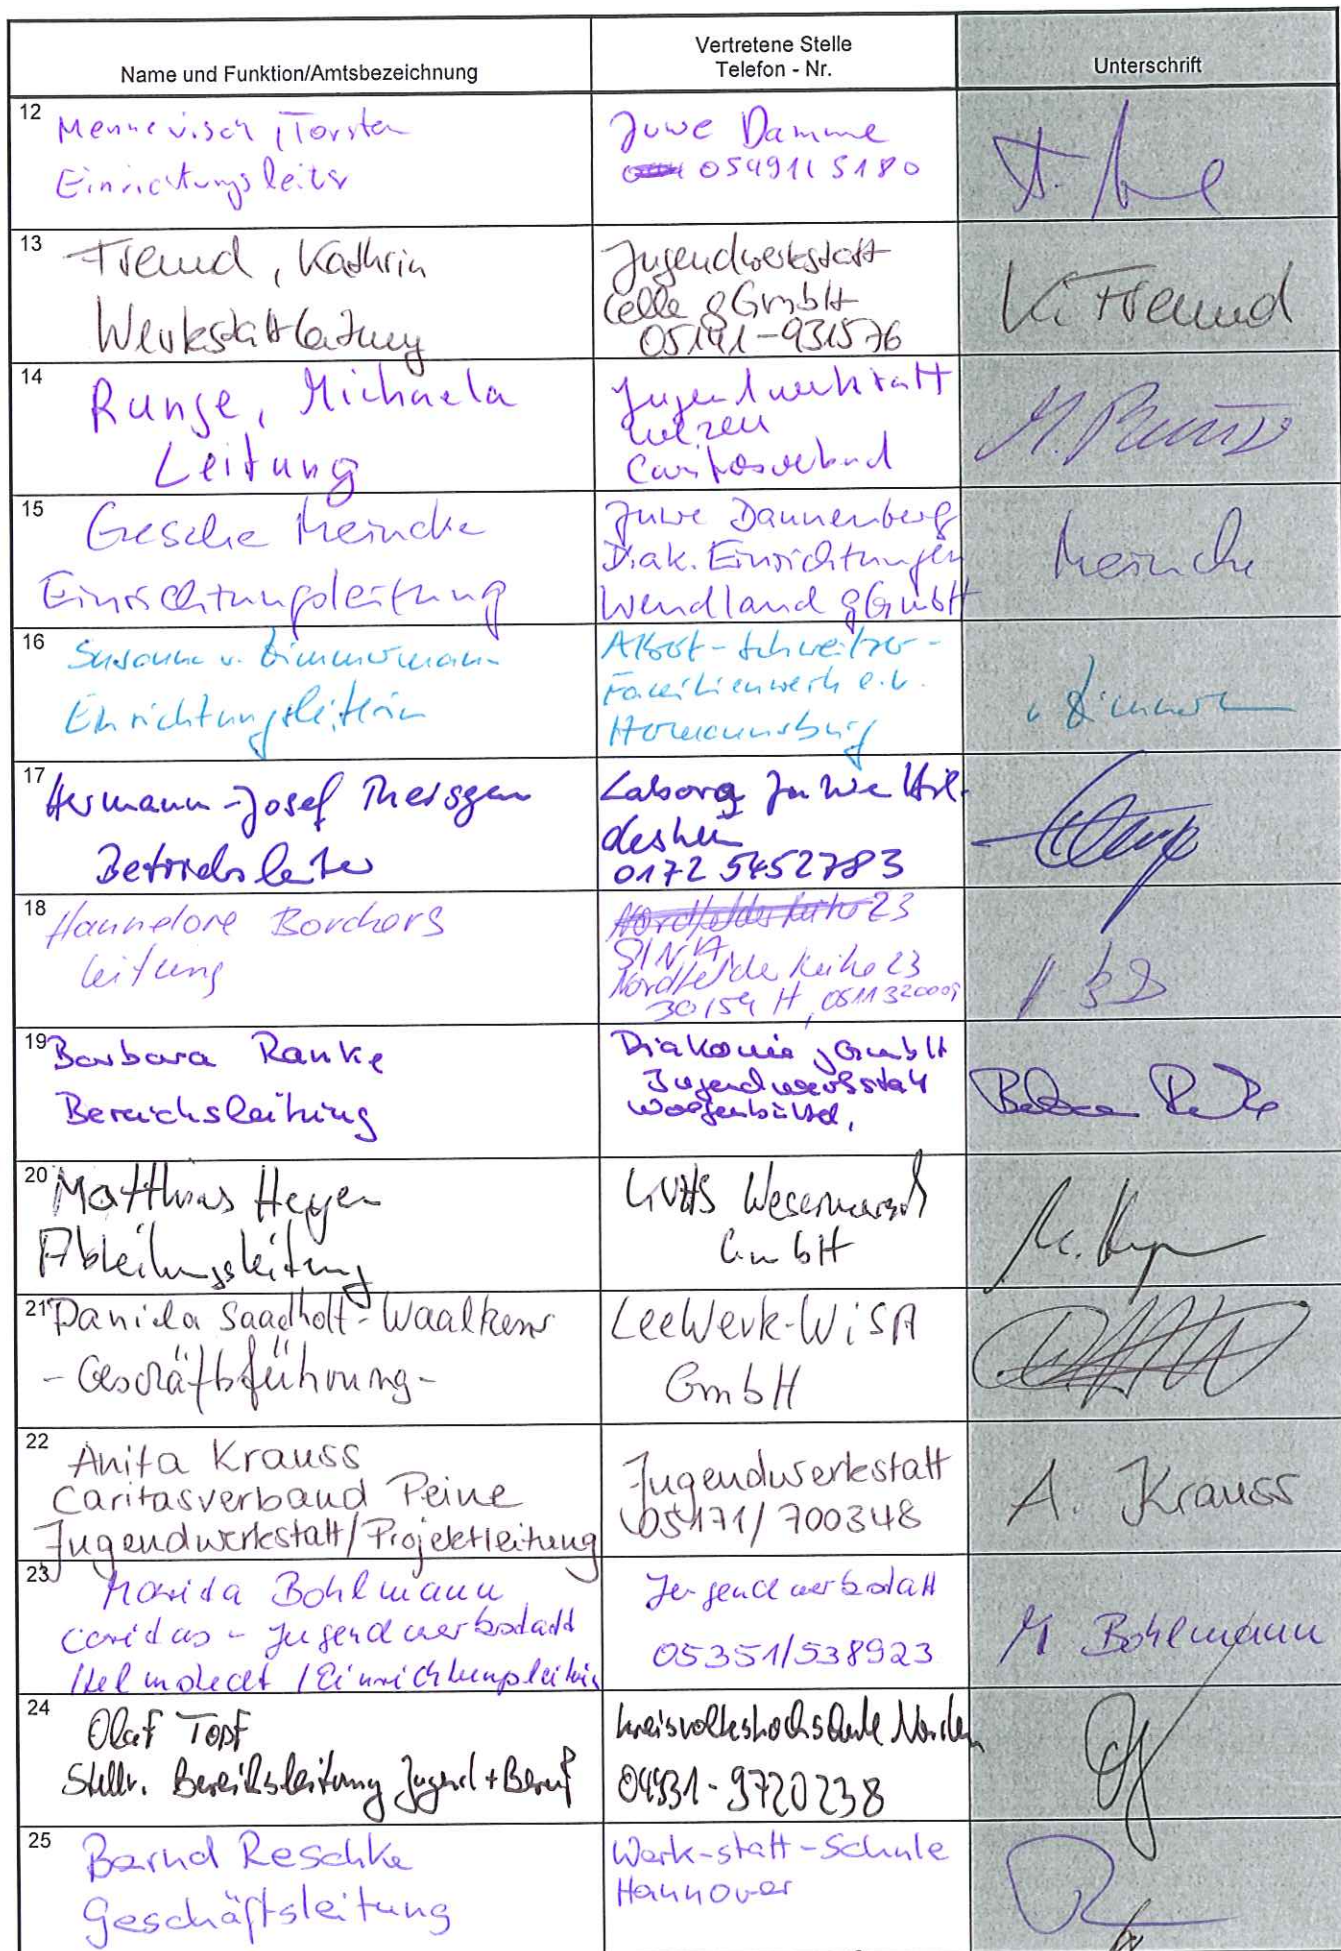 Name und Funktion/Amtsbezeichnung
Vertretene Stelle
Telefon - Nr.
Unterschrift
12
Torsten
Einrichtungsleiter
Juwe Damme
05491/5180
13
Freund, Kathrin
Werkstattleitung
Jugendwerkstatt
Celle gGmbH
05141-931576
K. Freund
14
Runge, Michaela
Leitung
Jugendwerkstatt
Uelzen
Caritasverband
M. Runge
15
Gesche Meincke
Einrichtungsleitung
Juwe Dannenberg
Diak. Einrichtungen
Wendland gGmbH
Meincke
16
Susanne v. Zimmermann
Einrichtungsleiterin
Albert-Schweitzer-
Familienwerk e.V.
Hermannsburg
17
Hermann-Josef Theissgen
Betriebsleiter
Labora JuWe Hil-
desheim
0172 5452783
18
Hannelore Borchers
Leitung
Nordfelder Reihe 23
SINA
Nordfelder Reihe 23
30159 H, 0511 320009
19
Barbara Ranke
Bereichsleitung
Diakonie gGmbH
Jugendwerkstatt
Wolfenbüttel,
20
Matthias Heyen
Abteilungsleitung
KVHS Wesermarsch
GmbH
M. Heyen
21
Daniela Saadhoff-Waalkens
- Geschäftsführung -
LeeWerk-WiSA
GmbH
22
Anita Krauss
Caritasverband Peine
Jugendwerkstatt/Projektleitung
Jugendwerkstatt
05171/700348
A. Krauss
23
Marita Bohlmann
Caritas - Jugendwerkstatt
Helmstedt / Einrichtungsleitung
Jugendwerkstatt
05351/538923
M Bohlmann
24
Olaf Topf
Stellv. Bereichsleitung Jugend + Beruf
Kreisvolkshochschule Norden
04931-9720238
25
Bernd Reschke
Geschäftsleitung
Werk-statt-Schule
Hannover